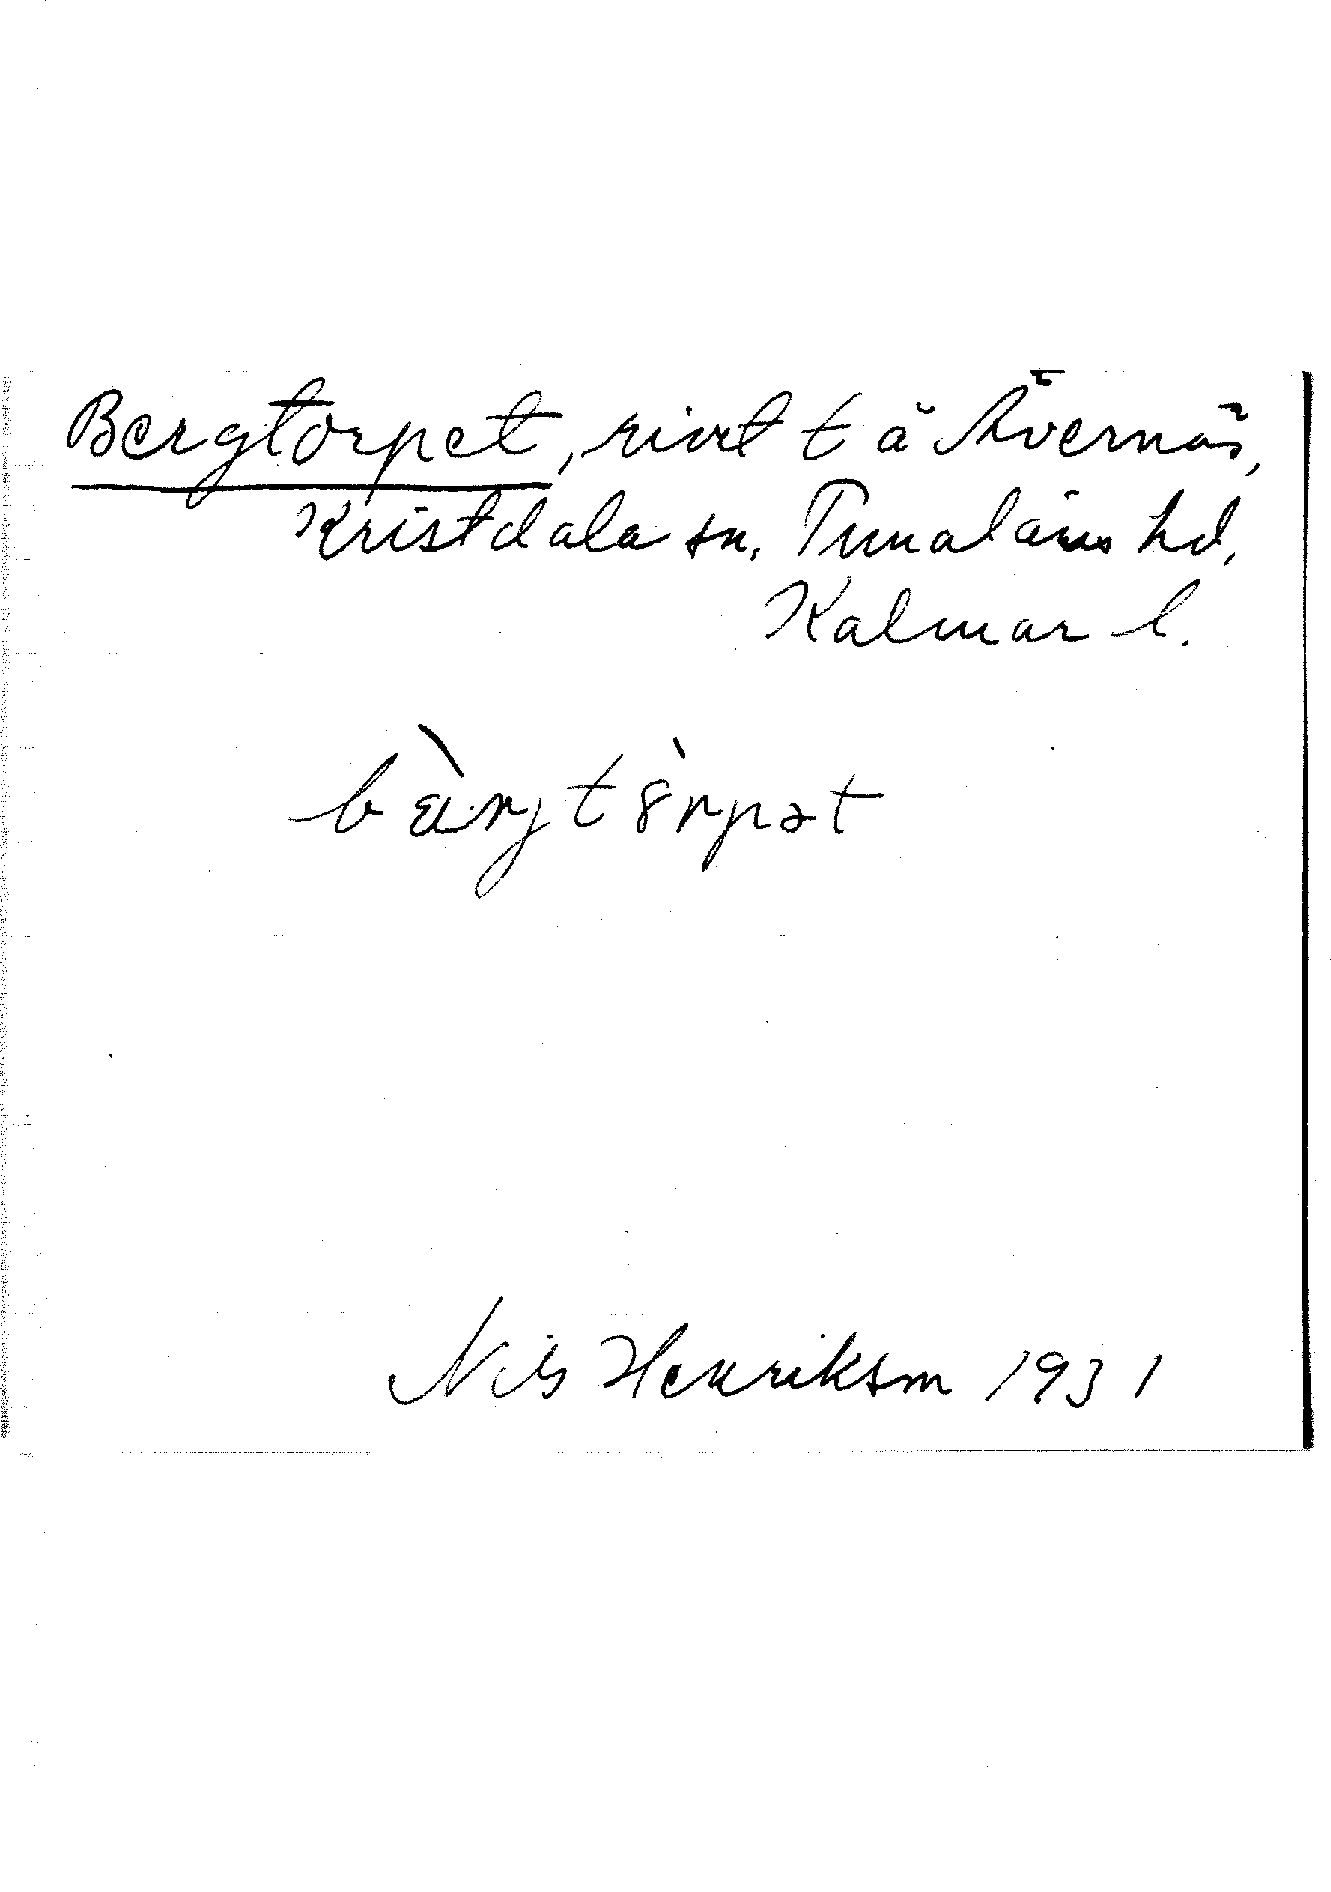 Bergtorpet, rivet t å Åvernäs,
Kristdala sn, Tunaläns hd,
Kalmar l.
Nils Henriksson 1931